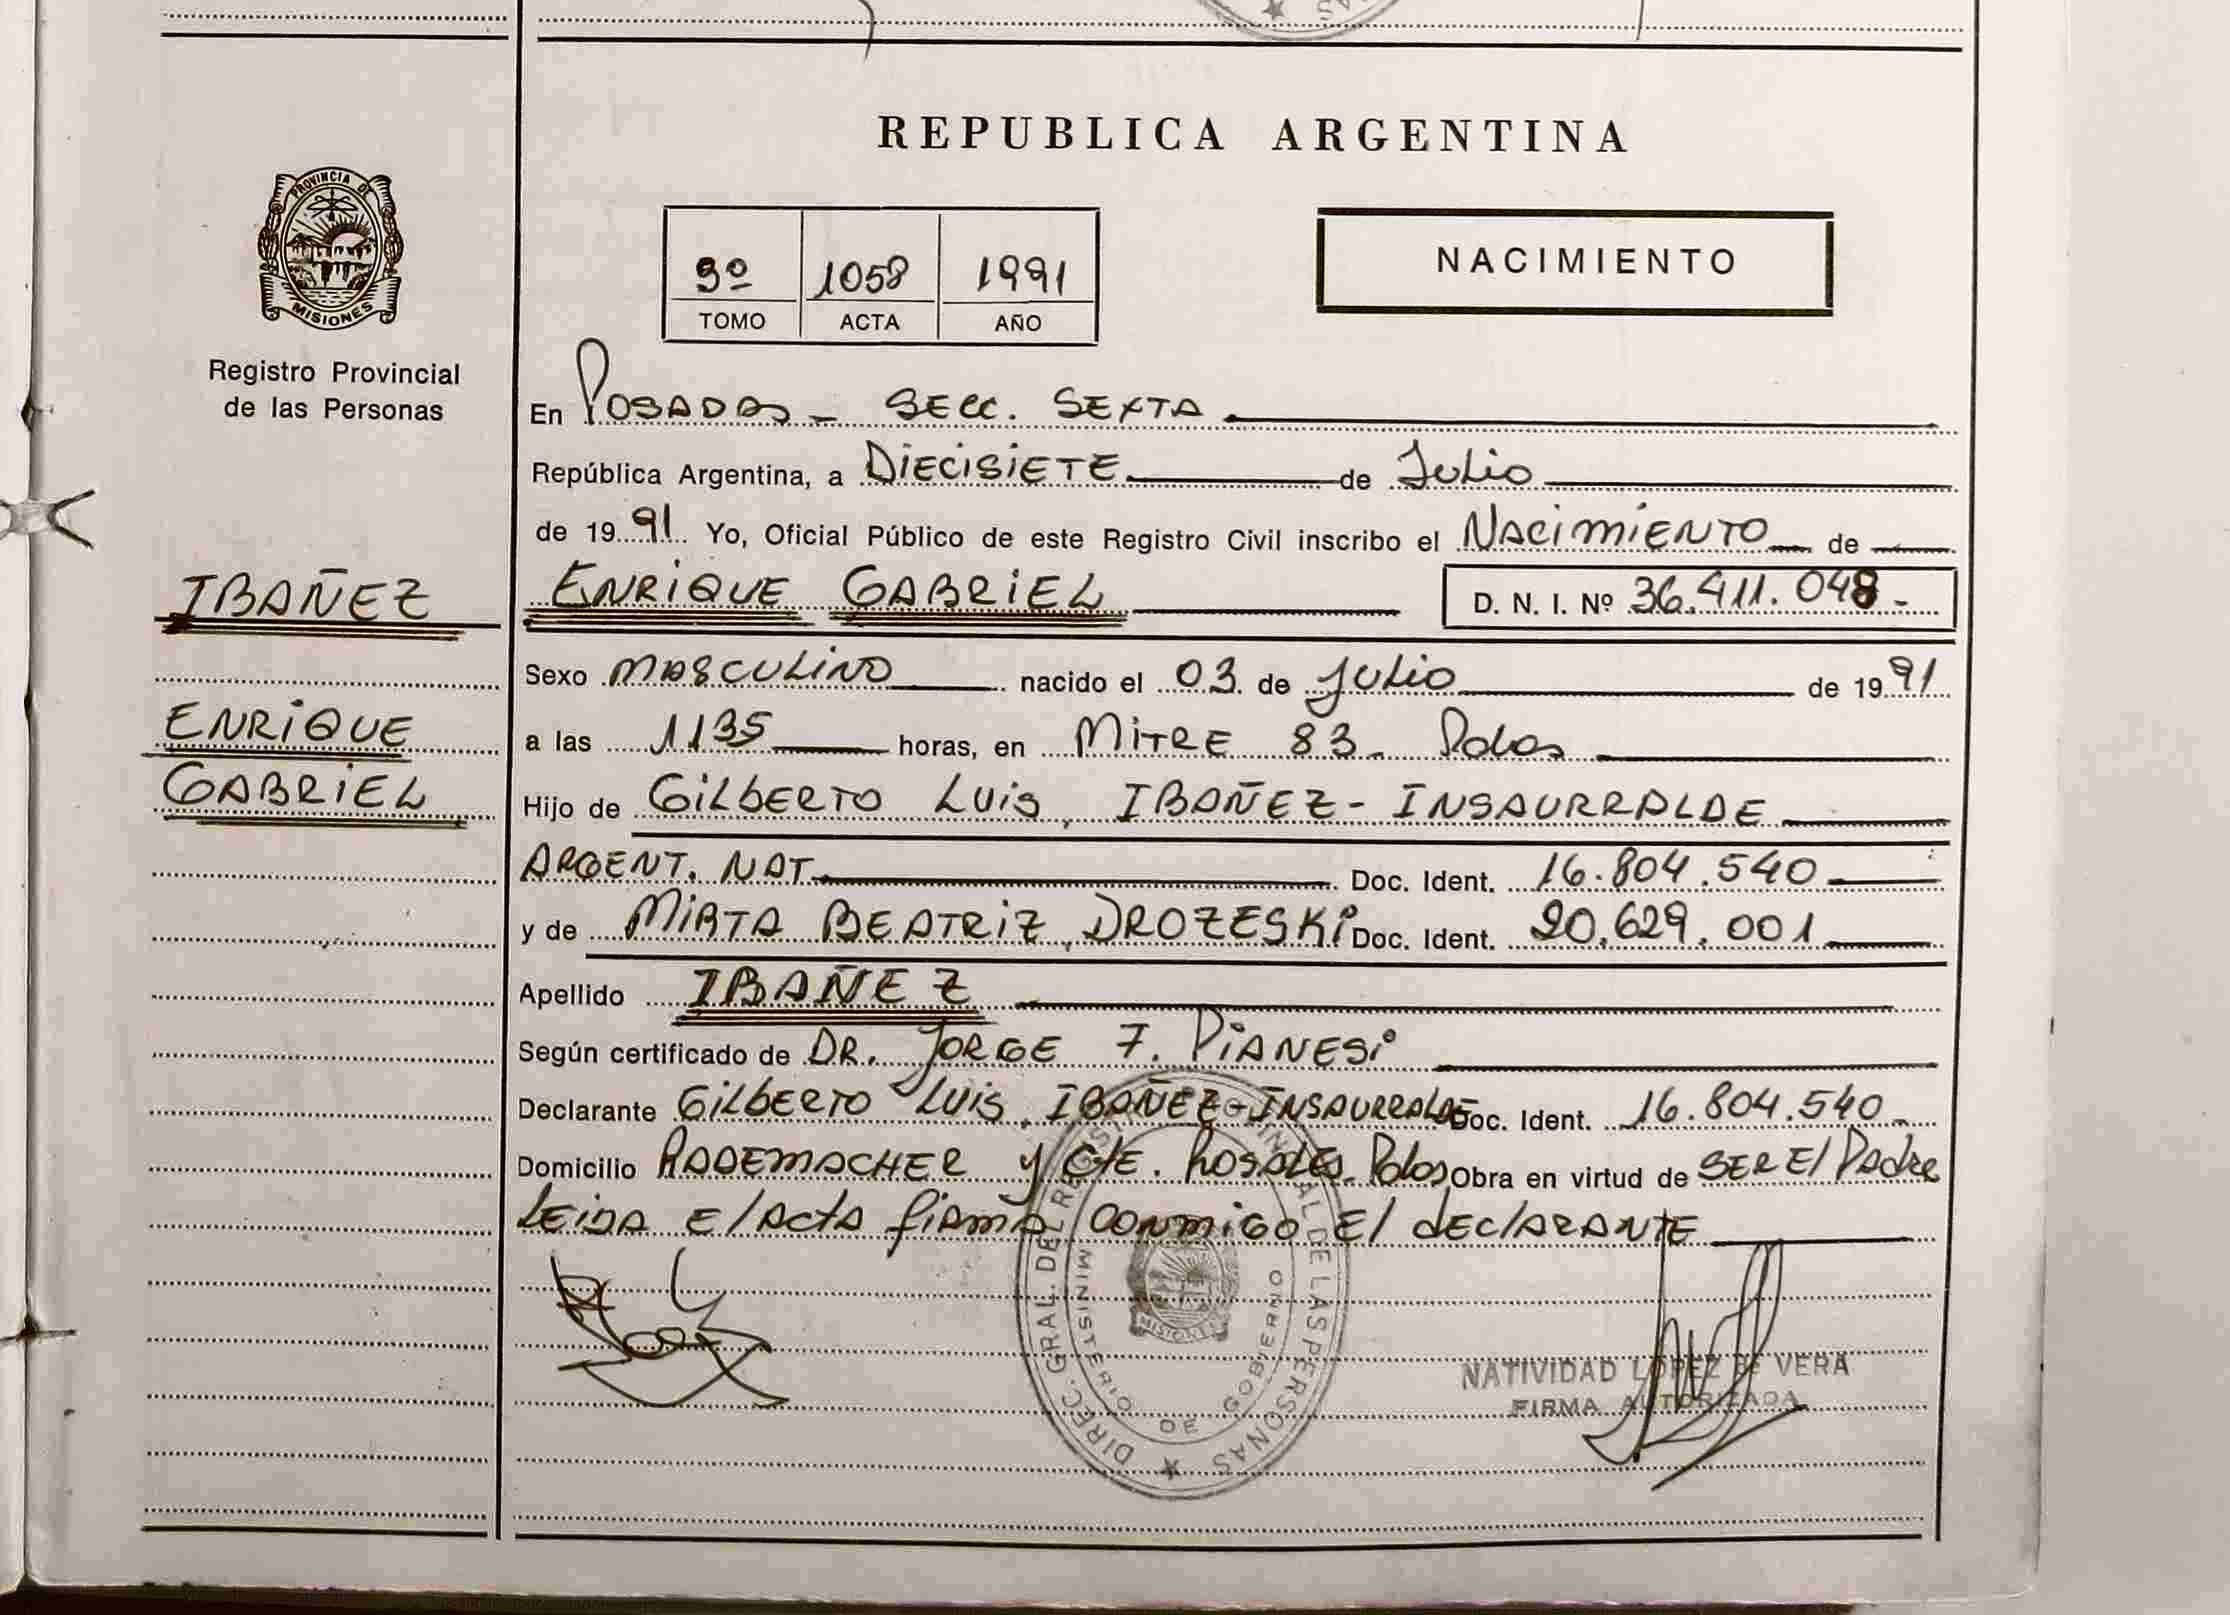 REPUBLICA ARGENTINA
PROVINCIA DE
MISIONES
Registro Provincial
de las Personas
1058 1991
TOMO ACTA AÑO
NACIMIENTO
En Posadas - Secc. Sexta
República Argentina, a Diecisiete de Julio
de 1991 Yo, Oficial Público de este Registro Civil inscribo el Nacimiento de
IBAÑEZ
ENRIQUE GABRIEL D. N. I. Nº 36.411.048-
Sexo Masculino nacido el 03 de Julio de 1991
ENRIQUE
a las 1135 horas, en Mitre 83- Pdas
GABRIEL
Hijo de Gilberto Luis, IBAÑEZ-INSAURRALDE
ARGENT. NAT. Doc. Ident. 16.804.540
y de MIRTA BEATRIZ, DROZESKI Doc. Ident. 20.629.001
Apellido IBAÑEZ
Según certificado de DR. JORGE F. PIANESI
Declarante Gilberto Luis, IBAÑEZ-INSAURRALDE Doc. Ident. 16.804.540
Domicilio RADEMACHER y Cte. Rosales- Pdas Obra en virtud de SER El Padre
Leida el Acta firma conmigo El declarante
DIREC. GRAL. DEL REGISTRO PROVINCIAL DE LAS PERSONAS
MINISTERIO DE GOBIERNO
MISIONES
NATIVIDAD LOPEZ de VERA
FIRMA AUTORIZADA